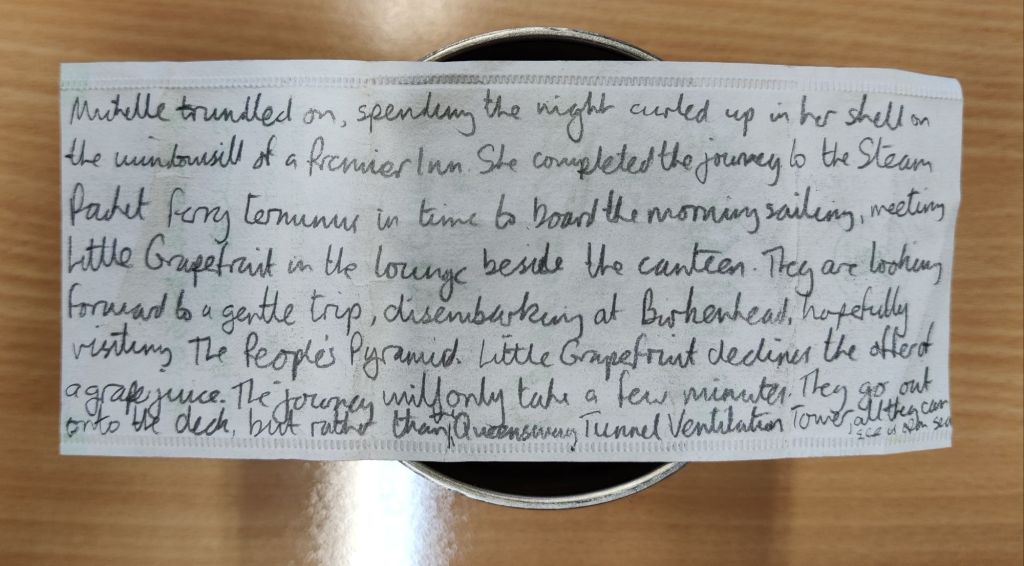 Michelle trundled on, spending the night curled up in her shell on
the windowsill of a Premier Inn. She completed the journey to the Steam
Packet ferry terminus in time to board the morning sailing, meeting
Little Grapefruit in the lounge beside the canteen. They are looking
forward to a gentle trip, disembarking at Birkenhead, hopefully
visiting The People's Pyramid. Little Grapefruit declines the offer of
a grape juice. The journey will only take a few minutes. They go out
onto the deck, but rather than Queensway Tunnel Ventilation Tower, all they can
see is open sea